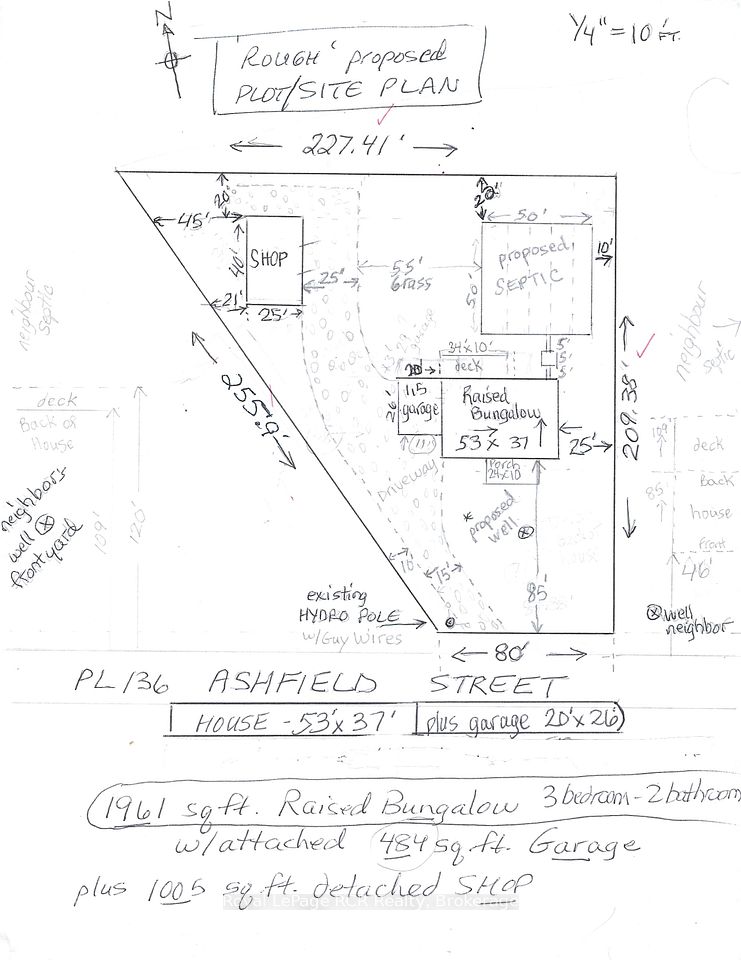 N
1/4" = 10 FT.
'ROUGH' proposed
PLOT/SITE PLAN
227.41'
20'
45'
40'
SHOP
21'
25'
25'
55'
Grass
50'
50'
proposed
SEPTIC
10'
neighbour
Septic
neighbour
Septic
255.9'
209.38'
34'x10'
deck
5'
5'
5'
20'
26'
garage
Raised
Bungalow
53 x 37
25'
Porch
24x10
Driveway
* proposed
well
10'
15'
85'
deck
Back of
House
109'
120'
neighbor's
well
front yard
109'
deck
85'
Back
house
Front
46'
well
neighbor
existing
HYDRO POLE
w/Guy Wires
80'
PL 136 ASHFIELD STREET
HOUSE - 53'x 37' plus garage 20'x 26'
1961 sq ft. Raised Bungalow 3 bedroom - 2 bathroom
w/attached 484 sq.ft. Garage
plus 1005 sq.ft. detached SHOP
Royal LePage RCR Realty, Brokerage